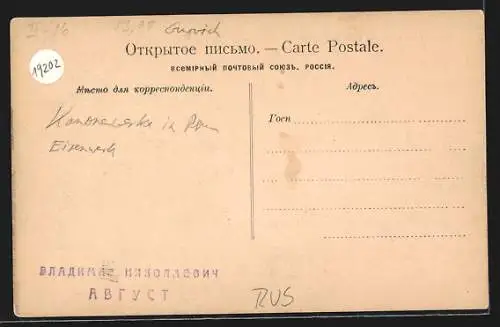 19202
Открытое письмо. — Carte Postale.
ВСЕМІРНЫЙ ПОЧТОВЫЙ СОЮЗЪ. РОССІЯ.
Мѣсто для корреспонденціи.
Адресъ.
in
Госп
Eisenwerk
ВЛАДИМИР НИКОЛАЕВИЧ
АВГУСТ
RUS